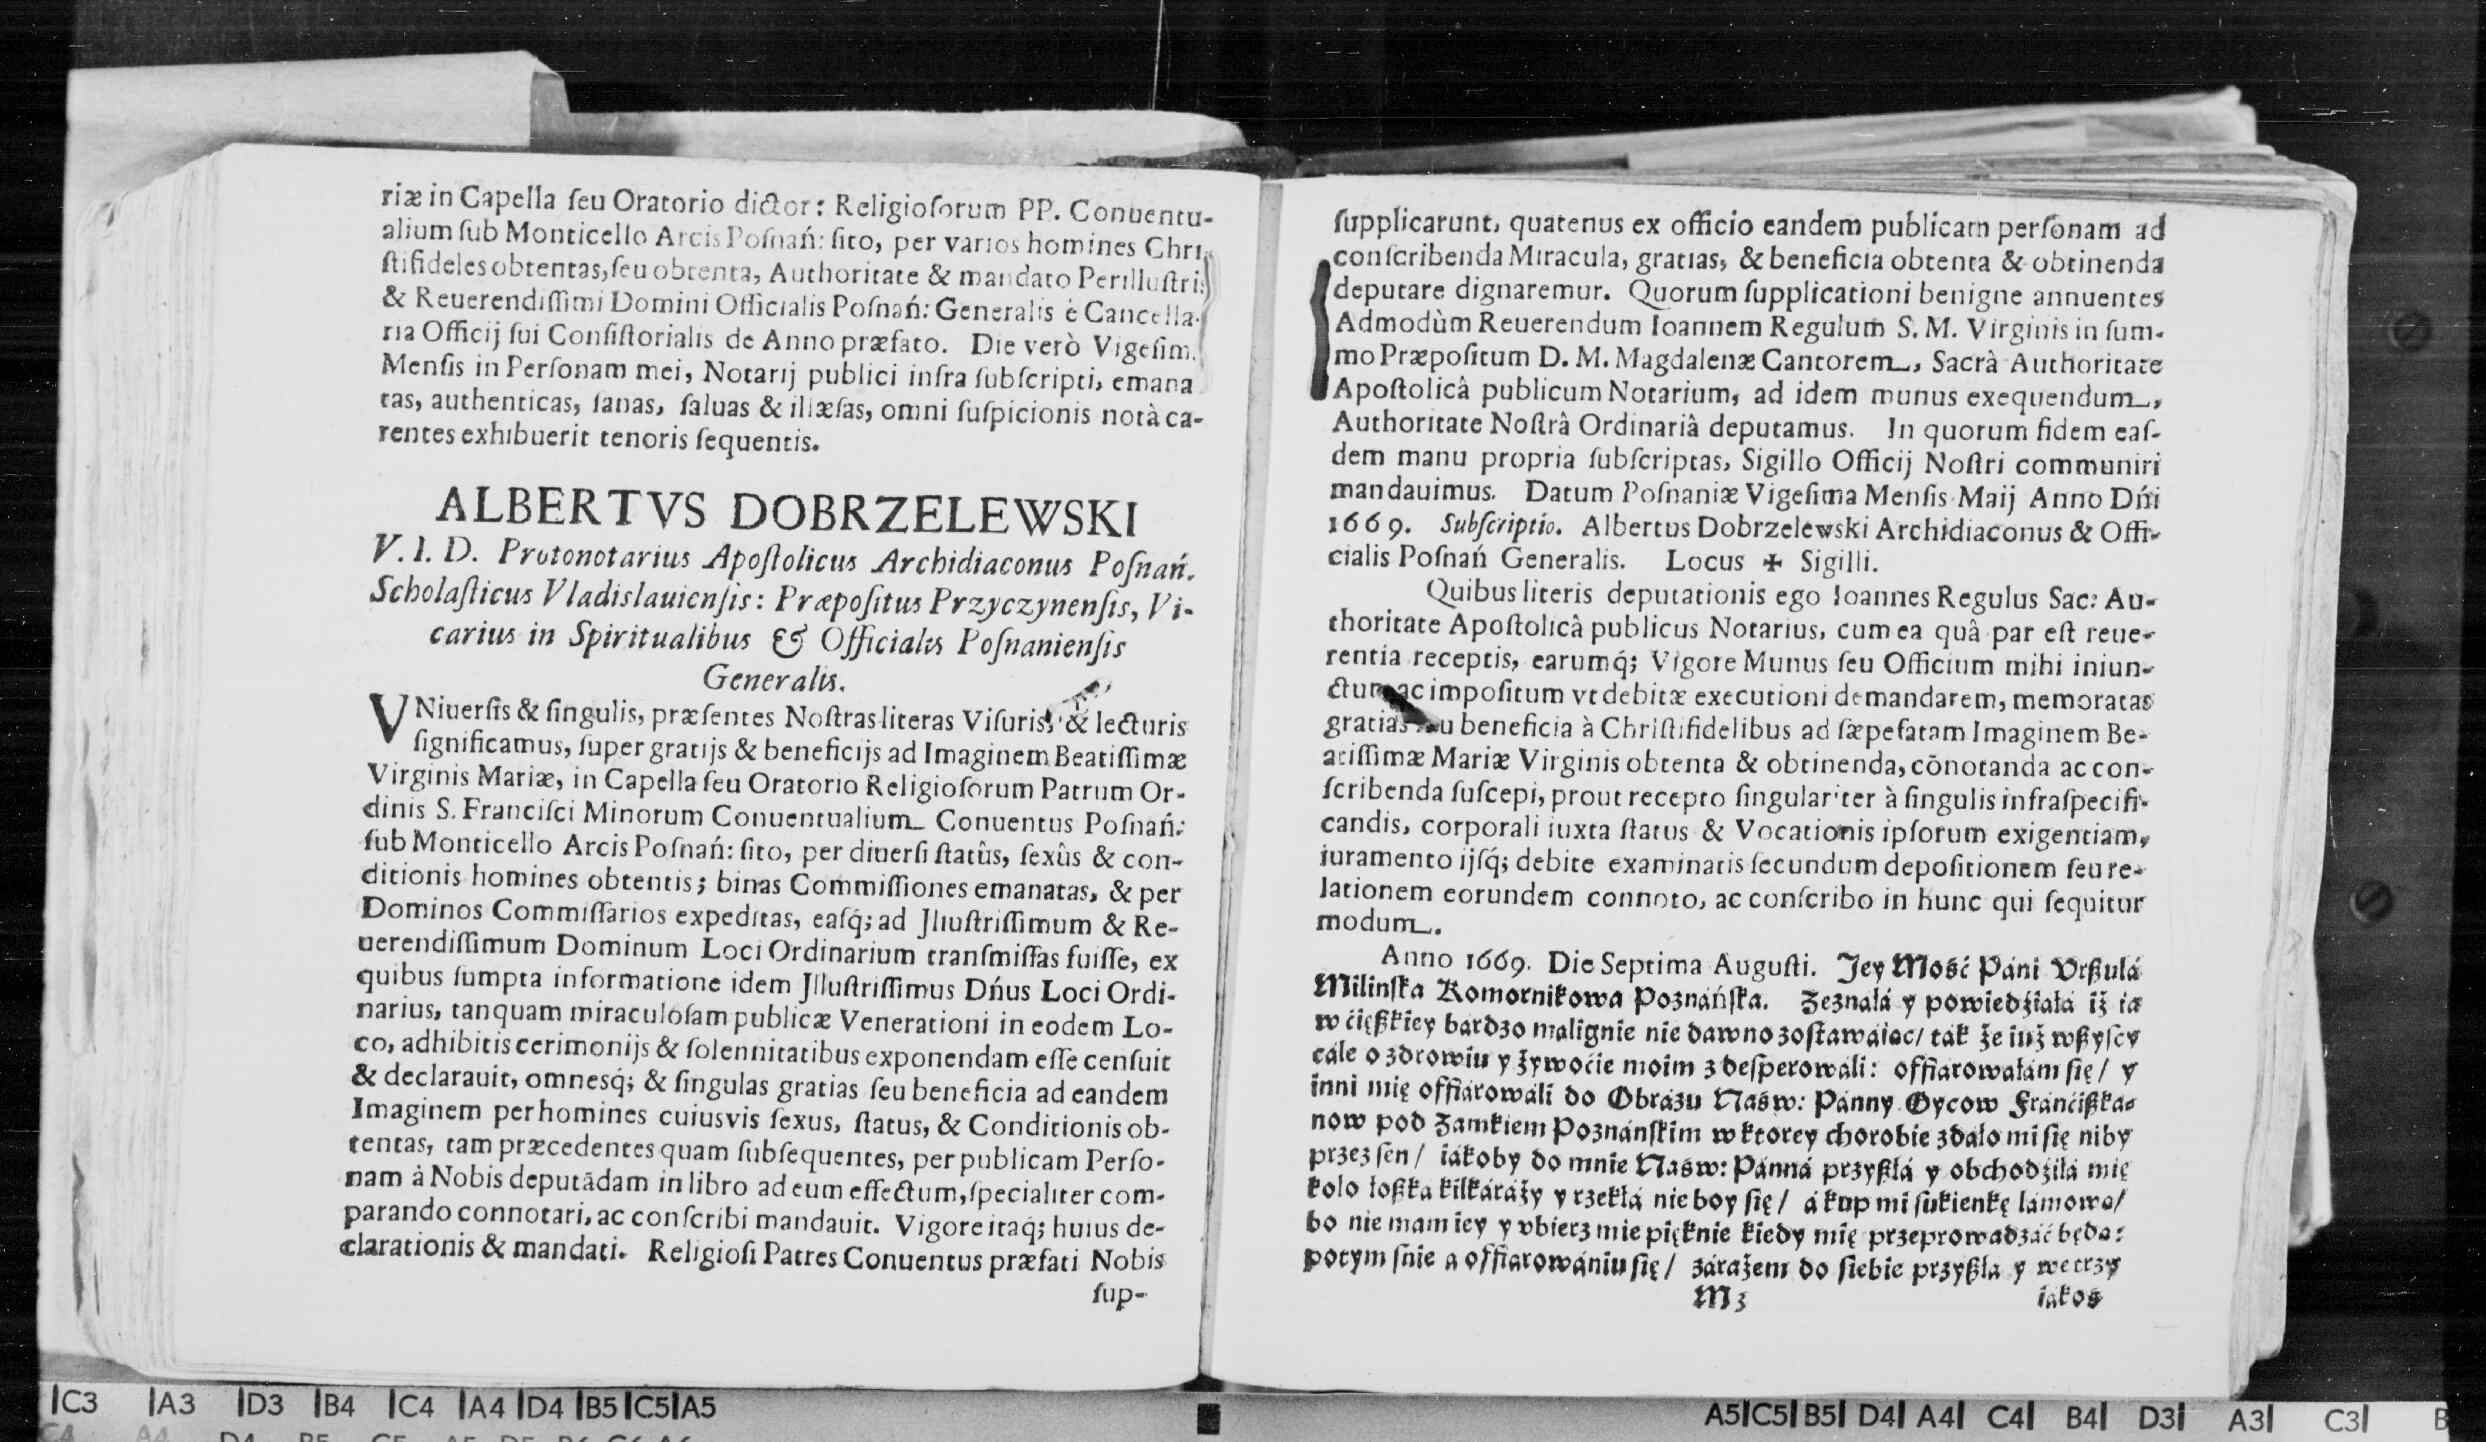 riæ in Capella ſeu Oratorio dictor: Religioſorum PP. Conuentu-
alium ſub Monticello Arcis Poſnań: ſito, per varios homines Chri-
ſtifideles obtentas, ſeu obtenta, Authoritate & mandato Perilluſtris
& Reuerendiſſimi Domini Officialis Poſnań: Generalis è Cancella-
ria Officij ſui Conſiſtorialis de Anno præfato. Die verò Vigeſim.
Menſis in Perſonam mei, Notarij publici infra ſubſcripti, emana
tas, authenticas, ſanas, ſaluas & illæſas, omni ſuſpicionis notà ca-
rentes exhibuerit tenoris ſequentis.
ALBERTVS DOBRZELEWSKI
V. I. D. Protonotarius Apoſtolicus Archidiaconus Poſnań.
Scholaſticus Vladislauienſis: Præpoſitus Przyczynenſis, Vi-
carius in Spiritualibus & Officialis Poſnanienſis
Generalis.
VNiuerſis & ſingulis, præſentes Noſtras literas Viſuris, & lecturis
ſignificamus, ſuper gratijs & beneficijs ad Imaginem Beatiſſimæ
Virginis Mariæ, in Capella ſeu Oratorio Religioſorum Patrum Or-
dinis S. Franciſci Minorum Conuentualium Conuentus Poſnań:
ſub Monticello Arcis Poſnań: ſito, per diuerſi ſtatûs, ſexûs & con-
ditionis homines obtentis; binas Commiſſiones emanatas, & per
Dominos Commiſſarios expeditas, eaſq́; ad Jlluſtriſſimum & Re-
uerendiſſimum Dominum Loci Ordinarium tranſmiſſas fuiſſe, ex
quibus ſumpta informatione idem Jlluſtriſſimus Dńus Loci Ordi-
narius, tanquam miraculoſam publicæ Venerationi in eodem Lo-
co, adhibitis cerimonijs & ſolennitatibus exponendam eſſe cenſuit
& declarauit, omnesq́; & ſingulas gratias ſeu beneficia ad eandem
Imaginem per homines cuiusvis ſexus, ſtatus, & Conditionis ob-
tentas, tam præcedentes quam ſubſequentes, per publicam Perſo-
nam à Nobis deputādam in libro ad eum effectum, ſpecialiter com-
parando connotari, ac conſcribi mandauit. Vigore itaq́; huius de-
clarationis & mandati. Religioſi Patres Conuentus præfati Nobis
ſup-
ſupplicarunt, quatenus ex officio eandem publicam perſonam ad
conſcribenda Miracula, gratias, & beneficia obtenta & obtinenda
deputare dignaremur. Quorum ſupplicationi benigne annuentes
Admodùm Reuerendum Ioannem Regulum S. M. Virginis in ſum-
mo Præpoſitum D. M. Magdalenæ Cantorem, Sacrà Authoritate
Apoſtolicâ publicum Notarium, ad idem munus exequendum,
Authoritate Noſtrâ Ordinariâ deputamus. In quorum fidem eaſ-
dem manu propria ſubſcriptas, Sigillo Officij Noſtri communiri
mandauimus. Datum Poſnaniæ Vigeſima Menſis Maij Anno Dńi
1669. Subſcriptio. Albertus Dobrzelewski Archidiaconus & Offi-
cialis Poſnań Generalis. Locus ✠ Sigilli.
Quibus literis deputationis ego Ioannes Regulus Sac: Au-
thoritate Apoſtolicâ publicus Notarius, cum ea quâ par eſt reue-
rentia receptis, earumq́; Vigore Munus ſeu Officium mihi iniun-
ctum ac impoſitum vt debitæ executioni demandarem, memoratas
gratias ſeu beneficia à Chriſtifidelibus ad ſæpefatam Imaginem Be-
atiſſimæ Mariæ Virginis obtenta & obtinenda, cōnotanda ac con-
ſcribenda ſuſcepi, prout recepto ſingulariter à ſingulis infraſpecifi-
candis, corporali iuxta ſtatus & Vocationis ipſorum exigentiam,
iuramento ijſq́; debite examinatis ſecundum depoſitionem ſeu re-
lationem eorundem connoto, ac conſcribo in hunc qui ſequitur
modum.
Anno 1669. Die Septima Auguſti. Jey Mość Páni Vrßulá
Milinſka Komornikowa Poznáńſka. Zeznáłá y powiedźiáłá iż ia
w ćięßkiey bárdzo malignie nie dawno zoſtawáiąc/ ták że iuż wßyſcy
cále o zdrowiu y żywoćie moim zdeſperowáli: offiarowáłám się/ y
inni mię offiárowáli do Obrázu Naśw: Pánny Oycow Fránćißka-
now pod Zamkiem Poznánſkim w ktorey chorobie zdáło mi się niby
przez ſen/ iákoby do mnie Naśw: Pánná przyßłá y obchodźiłá mię
koło łoßka kilkárázy y rzekłá nie boy się/ á kup mi ſukienkę lámową/
bo nie mam iey y vbierz mie pięknie kiedy mię przeprowadzáć będą:
potym ſnie a offiarowániu się/ zárażem do siebie przyßła y we trzy
M3
iákoś
C3 A3 D3 B4 C4 A4 D4 B5 C5 A5
A5 C5 B5 D4 A4 C4 B4 D3 A3 C3 B